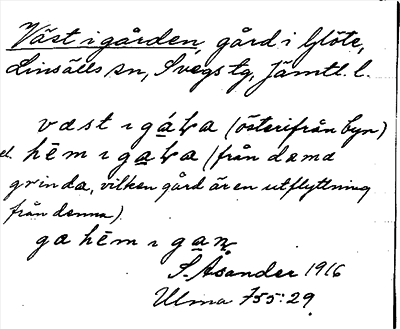 Väst i gården, gård i Glöte,
Linsälls sn, Svegs tg, Jämtl. l.
væst ɩ gáꞎa (österifrån byn)
el. hēm ɩ gaꞎa (från dema
grinda, vilken gård är en utflyttning
från denna).
ga hēm ɩ gaɳ
S. Åsander 1916
Ulma 755:29